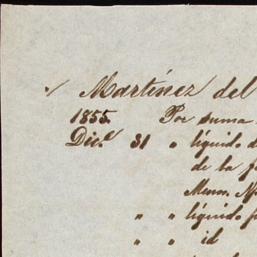 Martinez del
1855. Por suma
Dic.e 31 " líquido d
de la f
Menos.
" " líquido f
" " id